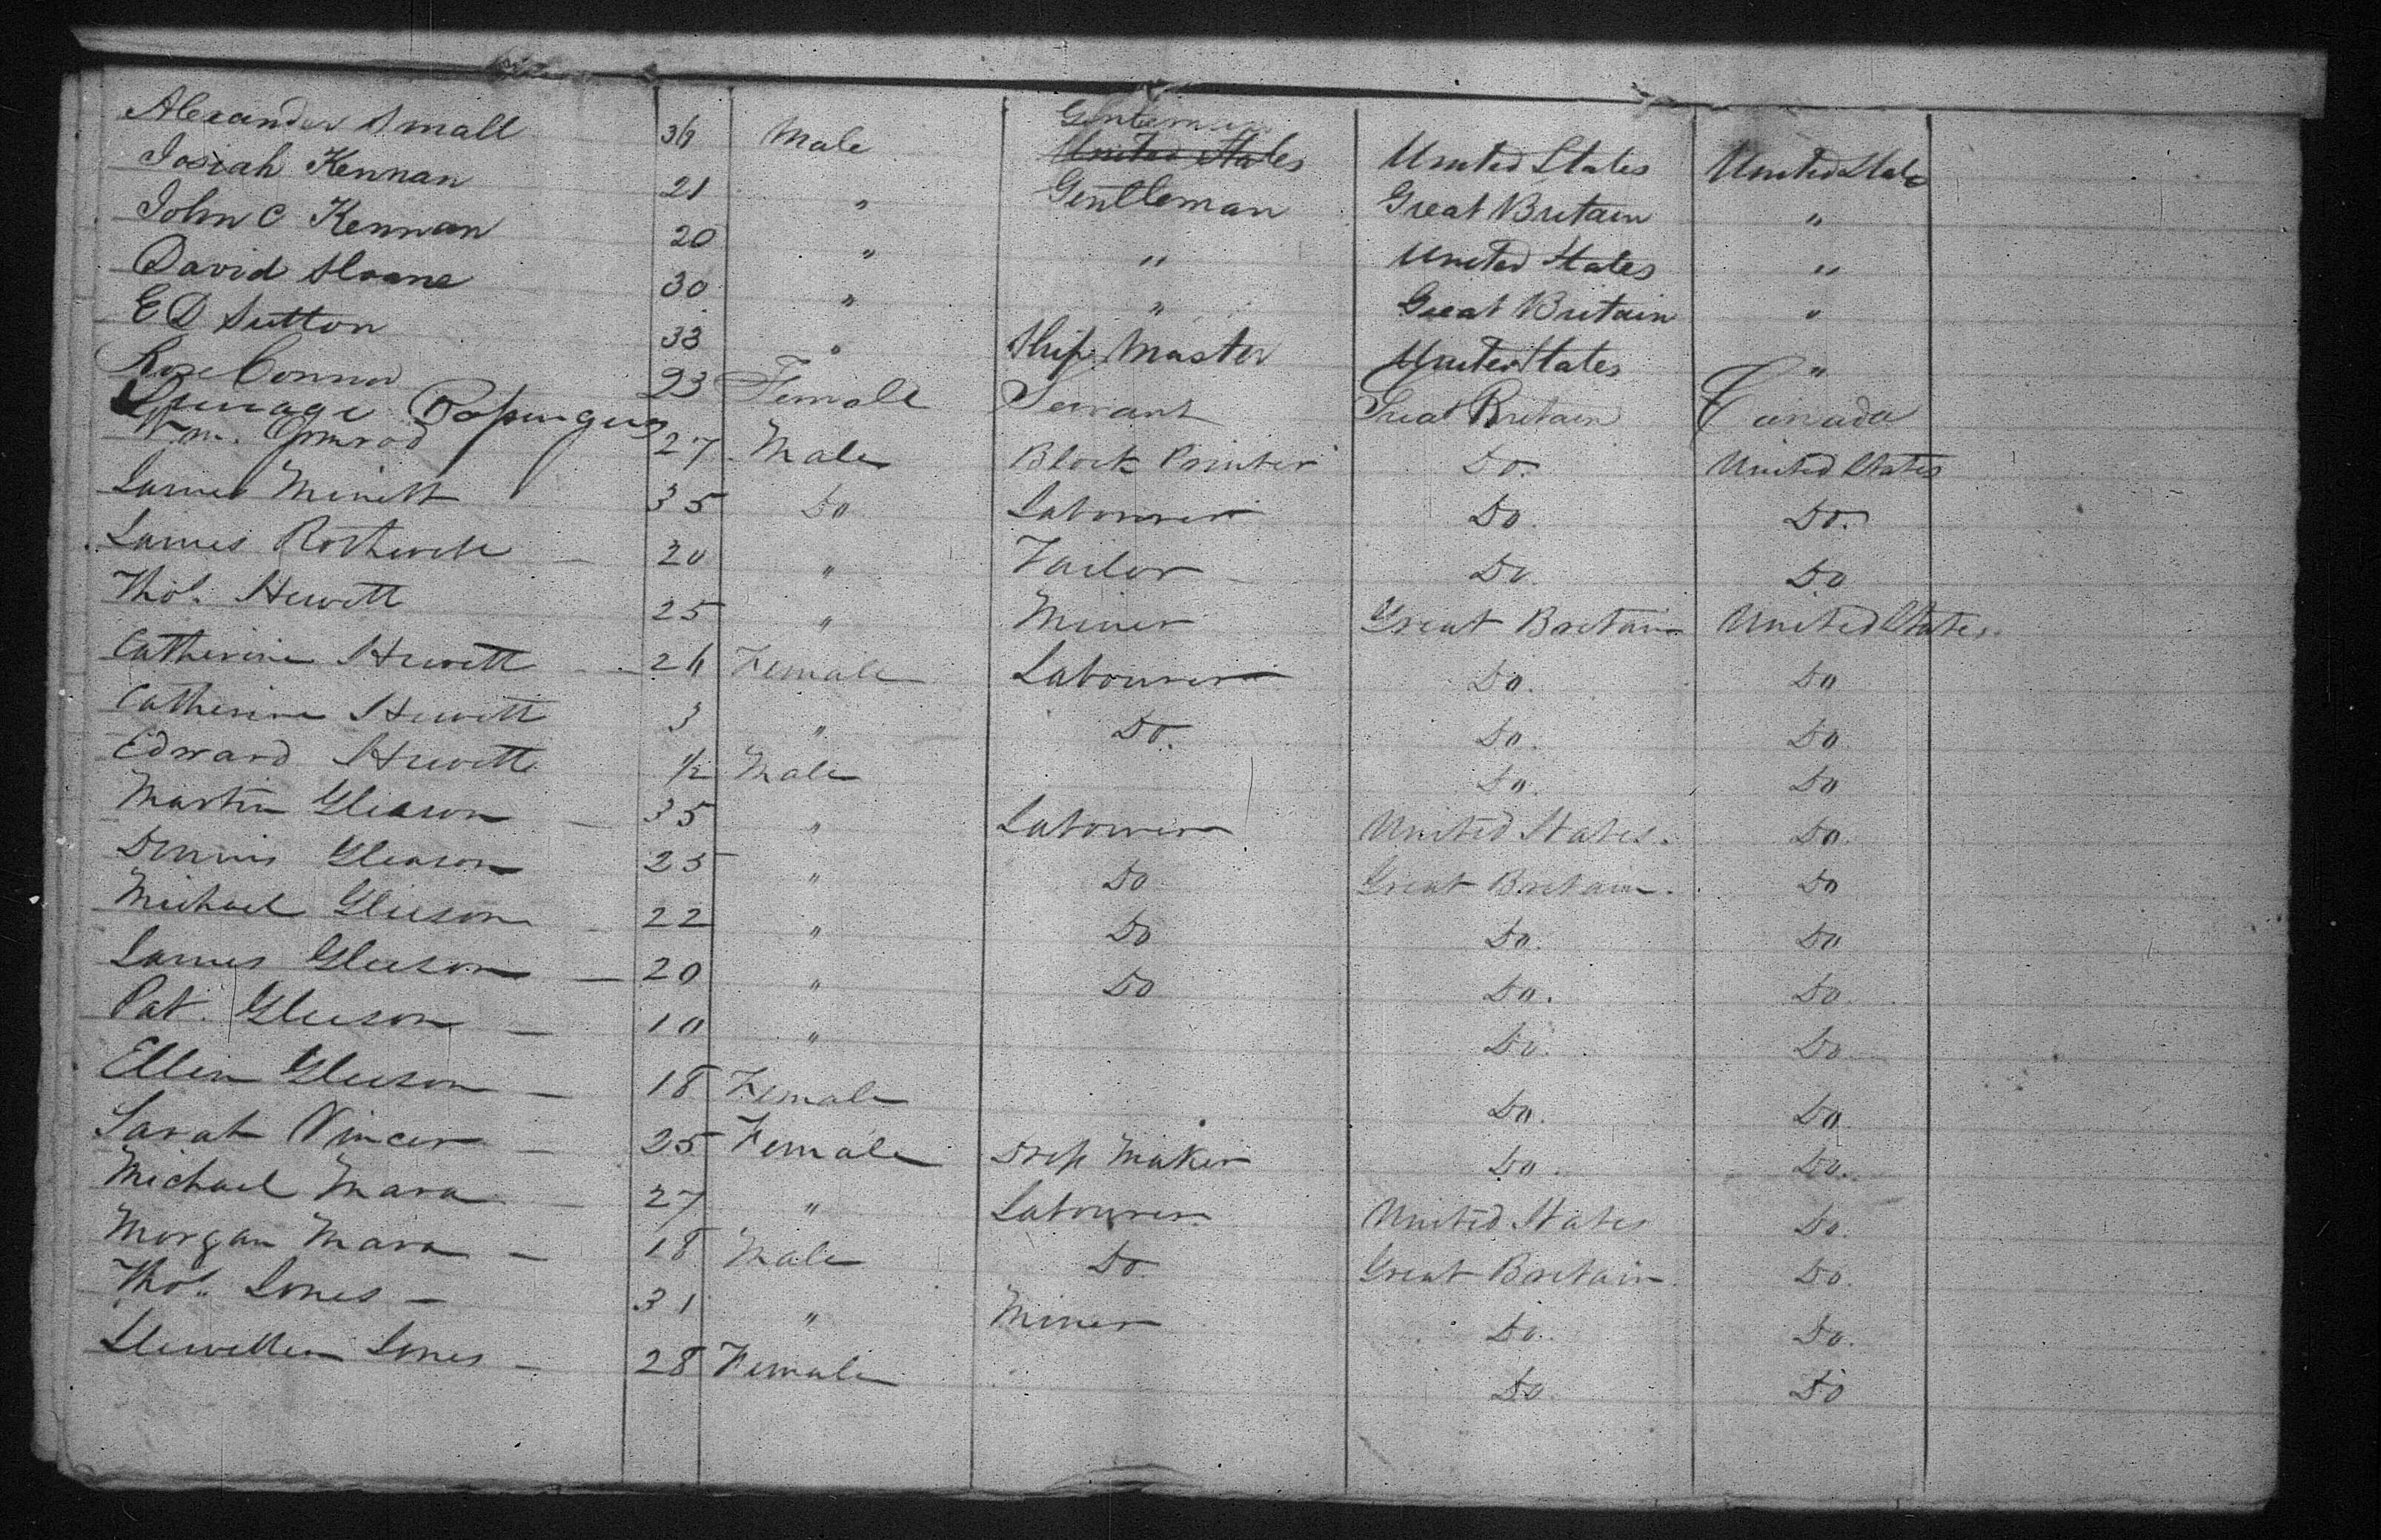 Alexander Small 36 Male Gentleman United States United States United States
Josiah Kennan 21 " Gentleman Great Britain "
John C Kennan 20 " " United States "
David Sloane 30 " " Great Britain "
E D Sutton 33 " Ship Master United States "
Rose Connor 23 Female Servant Great Britain Canada
Steerage Passengers
Wm. Ormrod 27 Male Block Printer Do. United States
James Minett 35 Do Labourer Do. Do.
James Rothwell 20 " Tailor Do. Do
Thos. Hewett 25 " Miner Great Britain United States
Catherine Hewett 26 Female Labourer Do. Do
Catherine Hewett 3 " Do. Do. Do
Edward Hewett 1/2 Male Do. Do
Martin Gleason 35 " Labourer United States. Do.
Dennis Gleason 25 " Do Great Britain. Do
Michael Gleeson 22 " Do Do. Do
James Gleeson 20 " Do Do. Do.
Pat. Gleeson 10 " Do. Do
Ellen Gleeson 18 Female Do. Do
Sarah Vincer 25 Female Dress Maker Do. Do.
Michael Mara 27 " Labourer United States Do.
Morgan Mara 18 Male Do. Great Britain. Do.
Thos. Jones 31 " Miner Do. Do.
Llewellen Jones 28 Female Do. Do